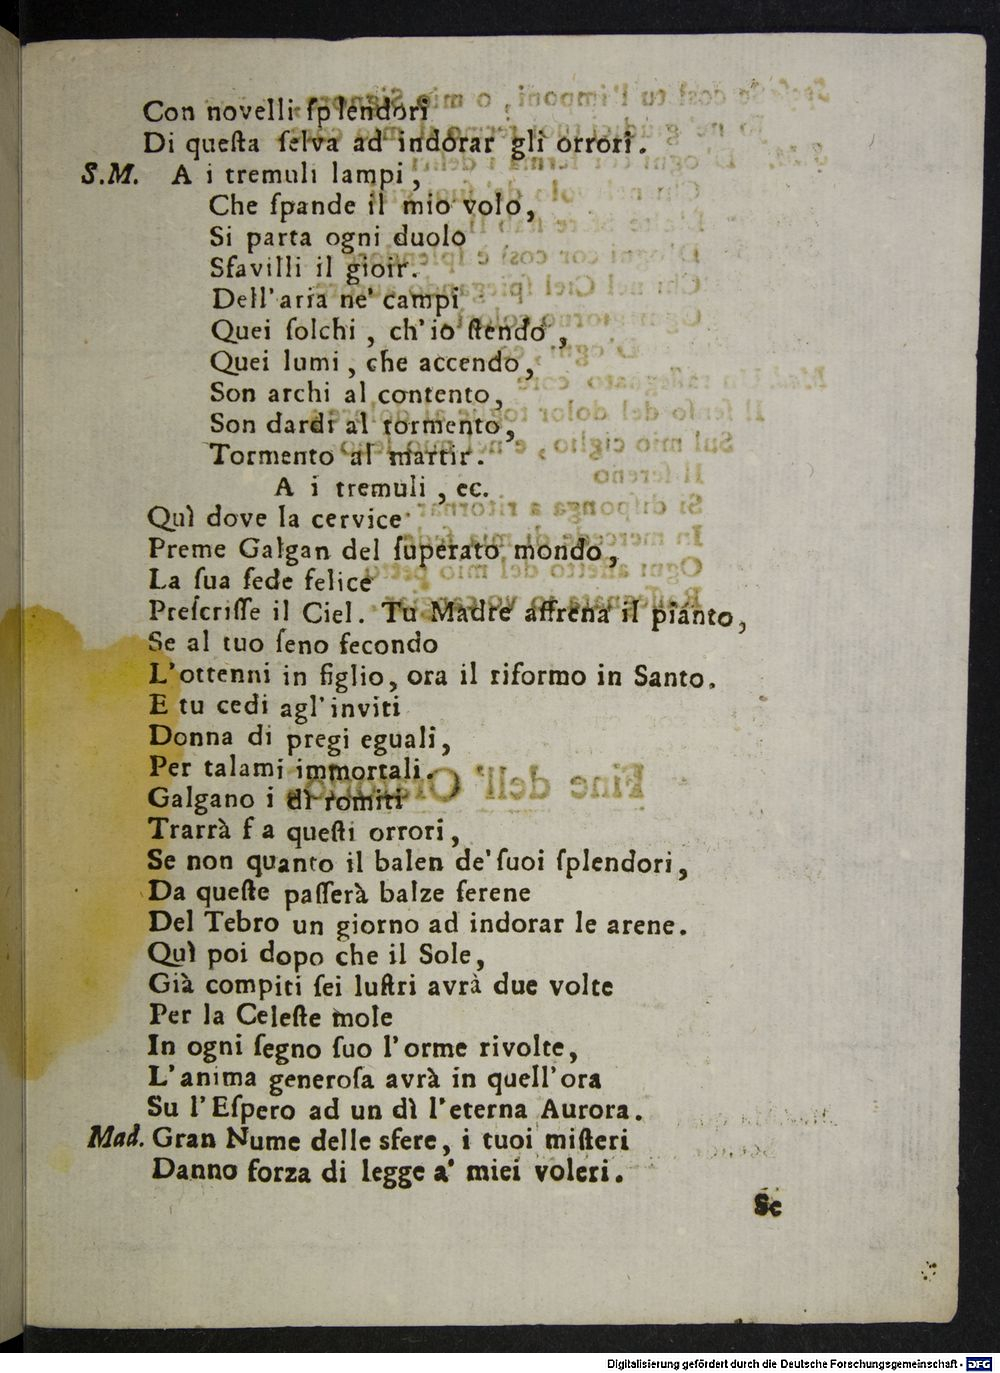 Con novelli ſplendori
Di queſta ſelva ad indorar gli orrori.
S.M. A i tremuli lampi,
Che ſpande il mio volo,
Si parta ogni duolo
Sfavilli il gioir.
Dell'aria ne' campi
Quei ſolchi, ch'io ſtendo,
Quei lumi, che accendo,
Son archi al contento,
Son dardi al tormento,
Tormento al martir.
A i tremuli, ec.
Quì dove la cervice
Preme Galgan del ſuperato mondo,
La ſua ſede felice
Preſcriſſe il Ciel. Tu Madre affrena il pianto,
Se al tuo ſeno fecondo
L'ottenni in figlio, ora il riformo in Santo.
E tu cedi agl'inviti
Donna di pregi eguali,
Per talami immortali.
Galgano i dì romiti
Trarrà f a queſti orrori,
Se non quanto il balen de' ſuoi ſplendori,
Da queſte paſſerà balze ſerene
Del Tebro un giorno ad indorar le arene.
Quì poi dopo che il Sole,
Già compiti ſei luſtri avrà due volte
Per la Celeſte mole
In ogni ſegno ſuo l'orme rivolte,
L'anima generoſa avrà in quell'ora
Su l'Eſpero ad un dì l'eterna Aurora.
Mad. Gran Nume delle sfere, i tuoi miſteri
Danno forza di legge a' miei voleri.
Se
Digitalisierung gefördert durch die Deutsche Forschungsgemeinschaft - DFG